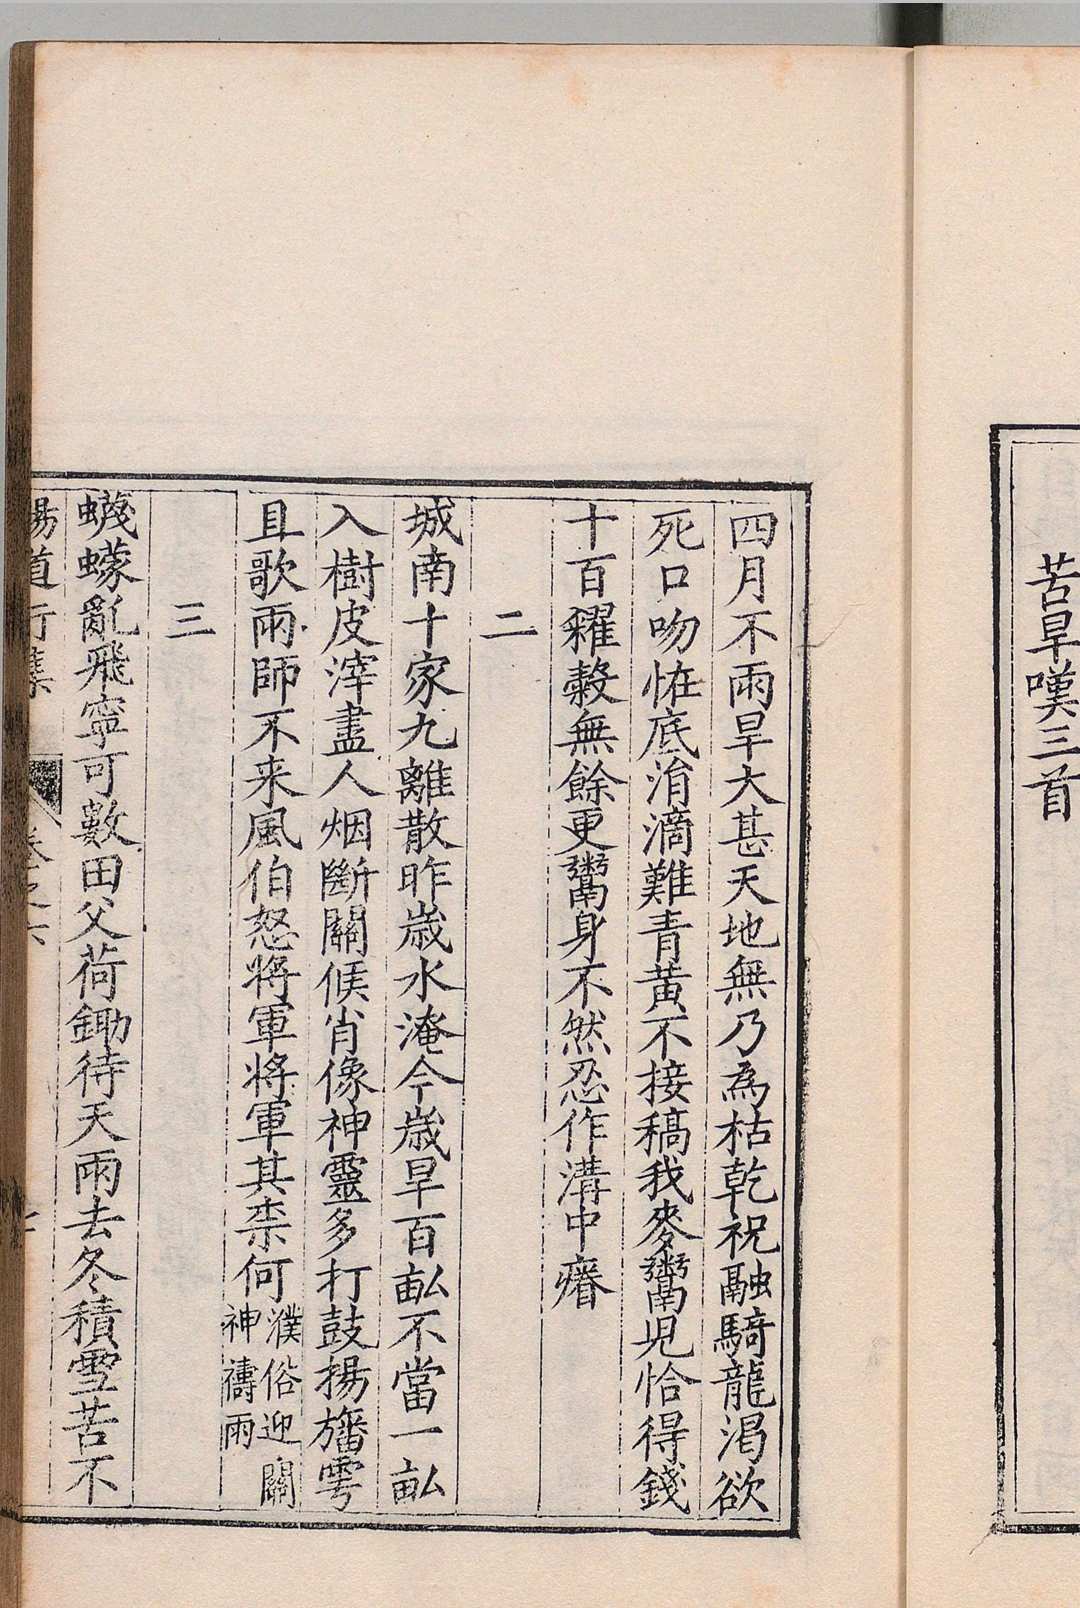 苦旱嘆三首
四月不雨旱大甚天地無乃為枯乾祝融騎龍渴欲
死口吻恠底涓滴難青黃不接稿我麥鬻児恰得錢
十百糴穀無餘更鬻身不然忍作溝中瘠
二
城南十家九離散昨歳水淹今歳旱百畝不當一畝
入樹皮滓盡人烟斷關候肖像神靈多打鼓揚旛雩
且歌雨師不来風伯怒将軍将軍其柰何
濮俗迎關
神禱雨
三
蠛蠓亂飛寧可數田父荷鋤待天雨去冬積雪苦不
楊道行集
卷之六